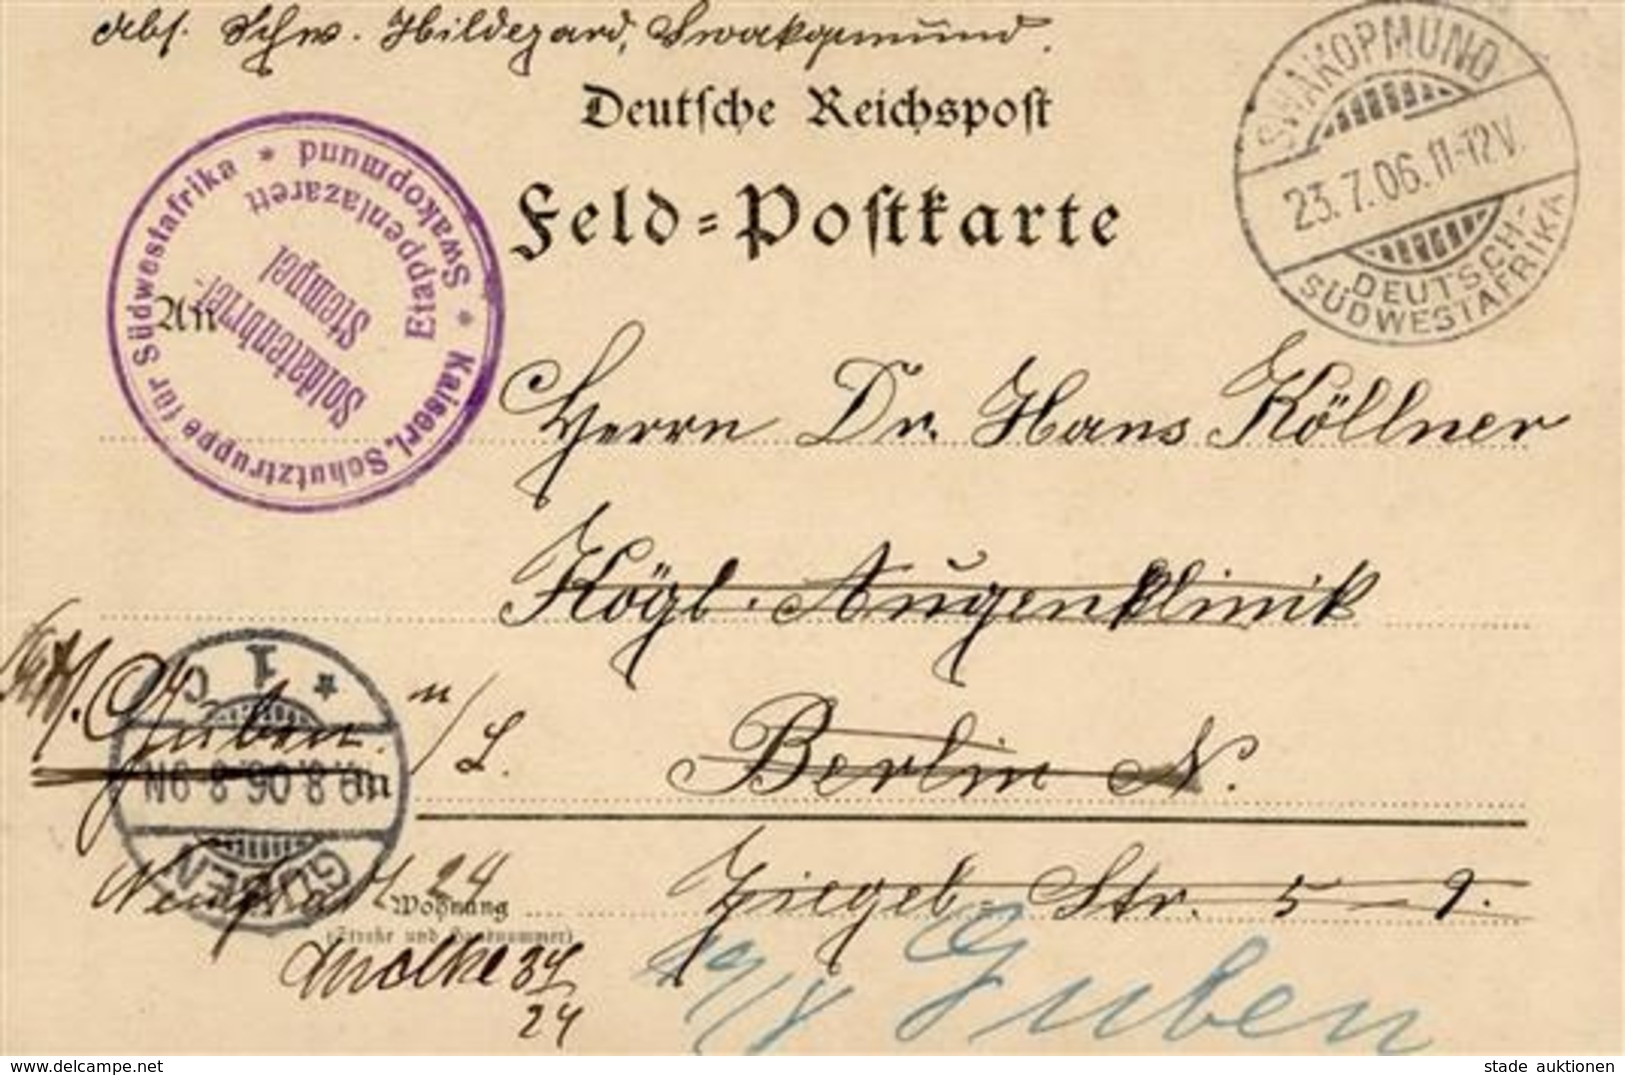 Abs. Schw. Hildegard, Swakopmund.
Deutsche Reichspost
Feld=Postkarte
SWAKOPMUND
23.7.06.11-12V.
DEUTSCH-
SÜDWESTAFRIKA
* Kaiserl. Schutztruppe für Südwestafrika * Swakopmund
Etappenlazarett
Soldatenbrief-
Stempel
An
Herrn Dr. Hans Köllner
Kögl. Augenklinik
Guben. n/L.
Berlin N.
* 1 C
8.06. 8-9N
GUBEN
in
24
Wohnung
(Straße und Hausnummer)
Ziegel-Str. 5-9.
Moltke 34
24
Guben
www.delcampe.net
stade auktionen